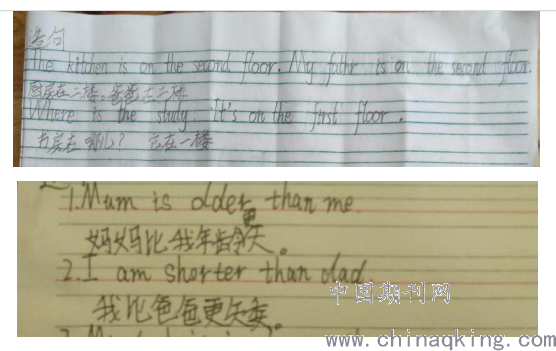 造句
The kitchen is on the second floor. My fathr is on the second floor.
厨房在二楼。爸爸在二楼
Where is the study. It's on the first floor.
书房在哪儿? 它在一楼
1. Mum is older than me.
妈妈比我年龄更大。
2. I am shorter than dad.
我比爸爸更矮。
中国期刊网
www.chinaqking.com